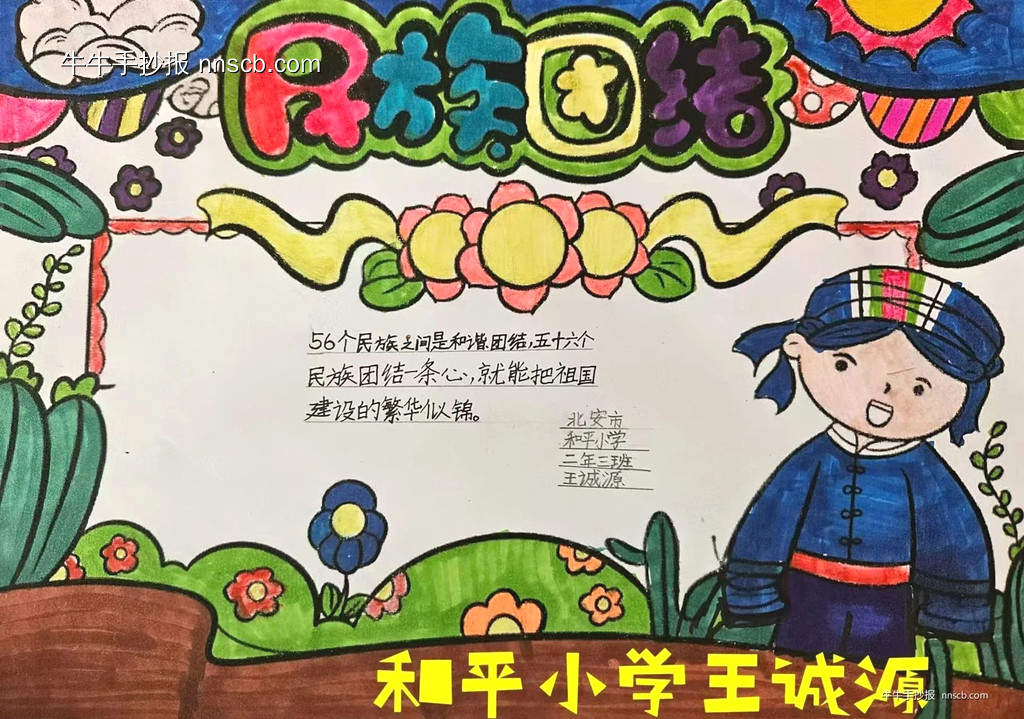 牛牛手抄报 nnscb.com
民族团结
56个民族之间是和谐团结,五十六个
民族团结一条心,就能把祖国
建设的繁华似锦。
北安市
和平小学
二年三班
王诚源
和平小学王诚源
牛牛手抄报 nnscb.com